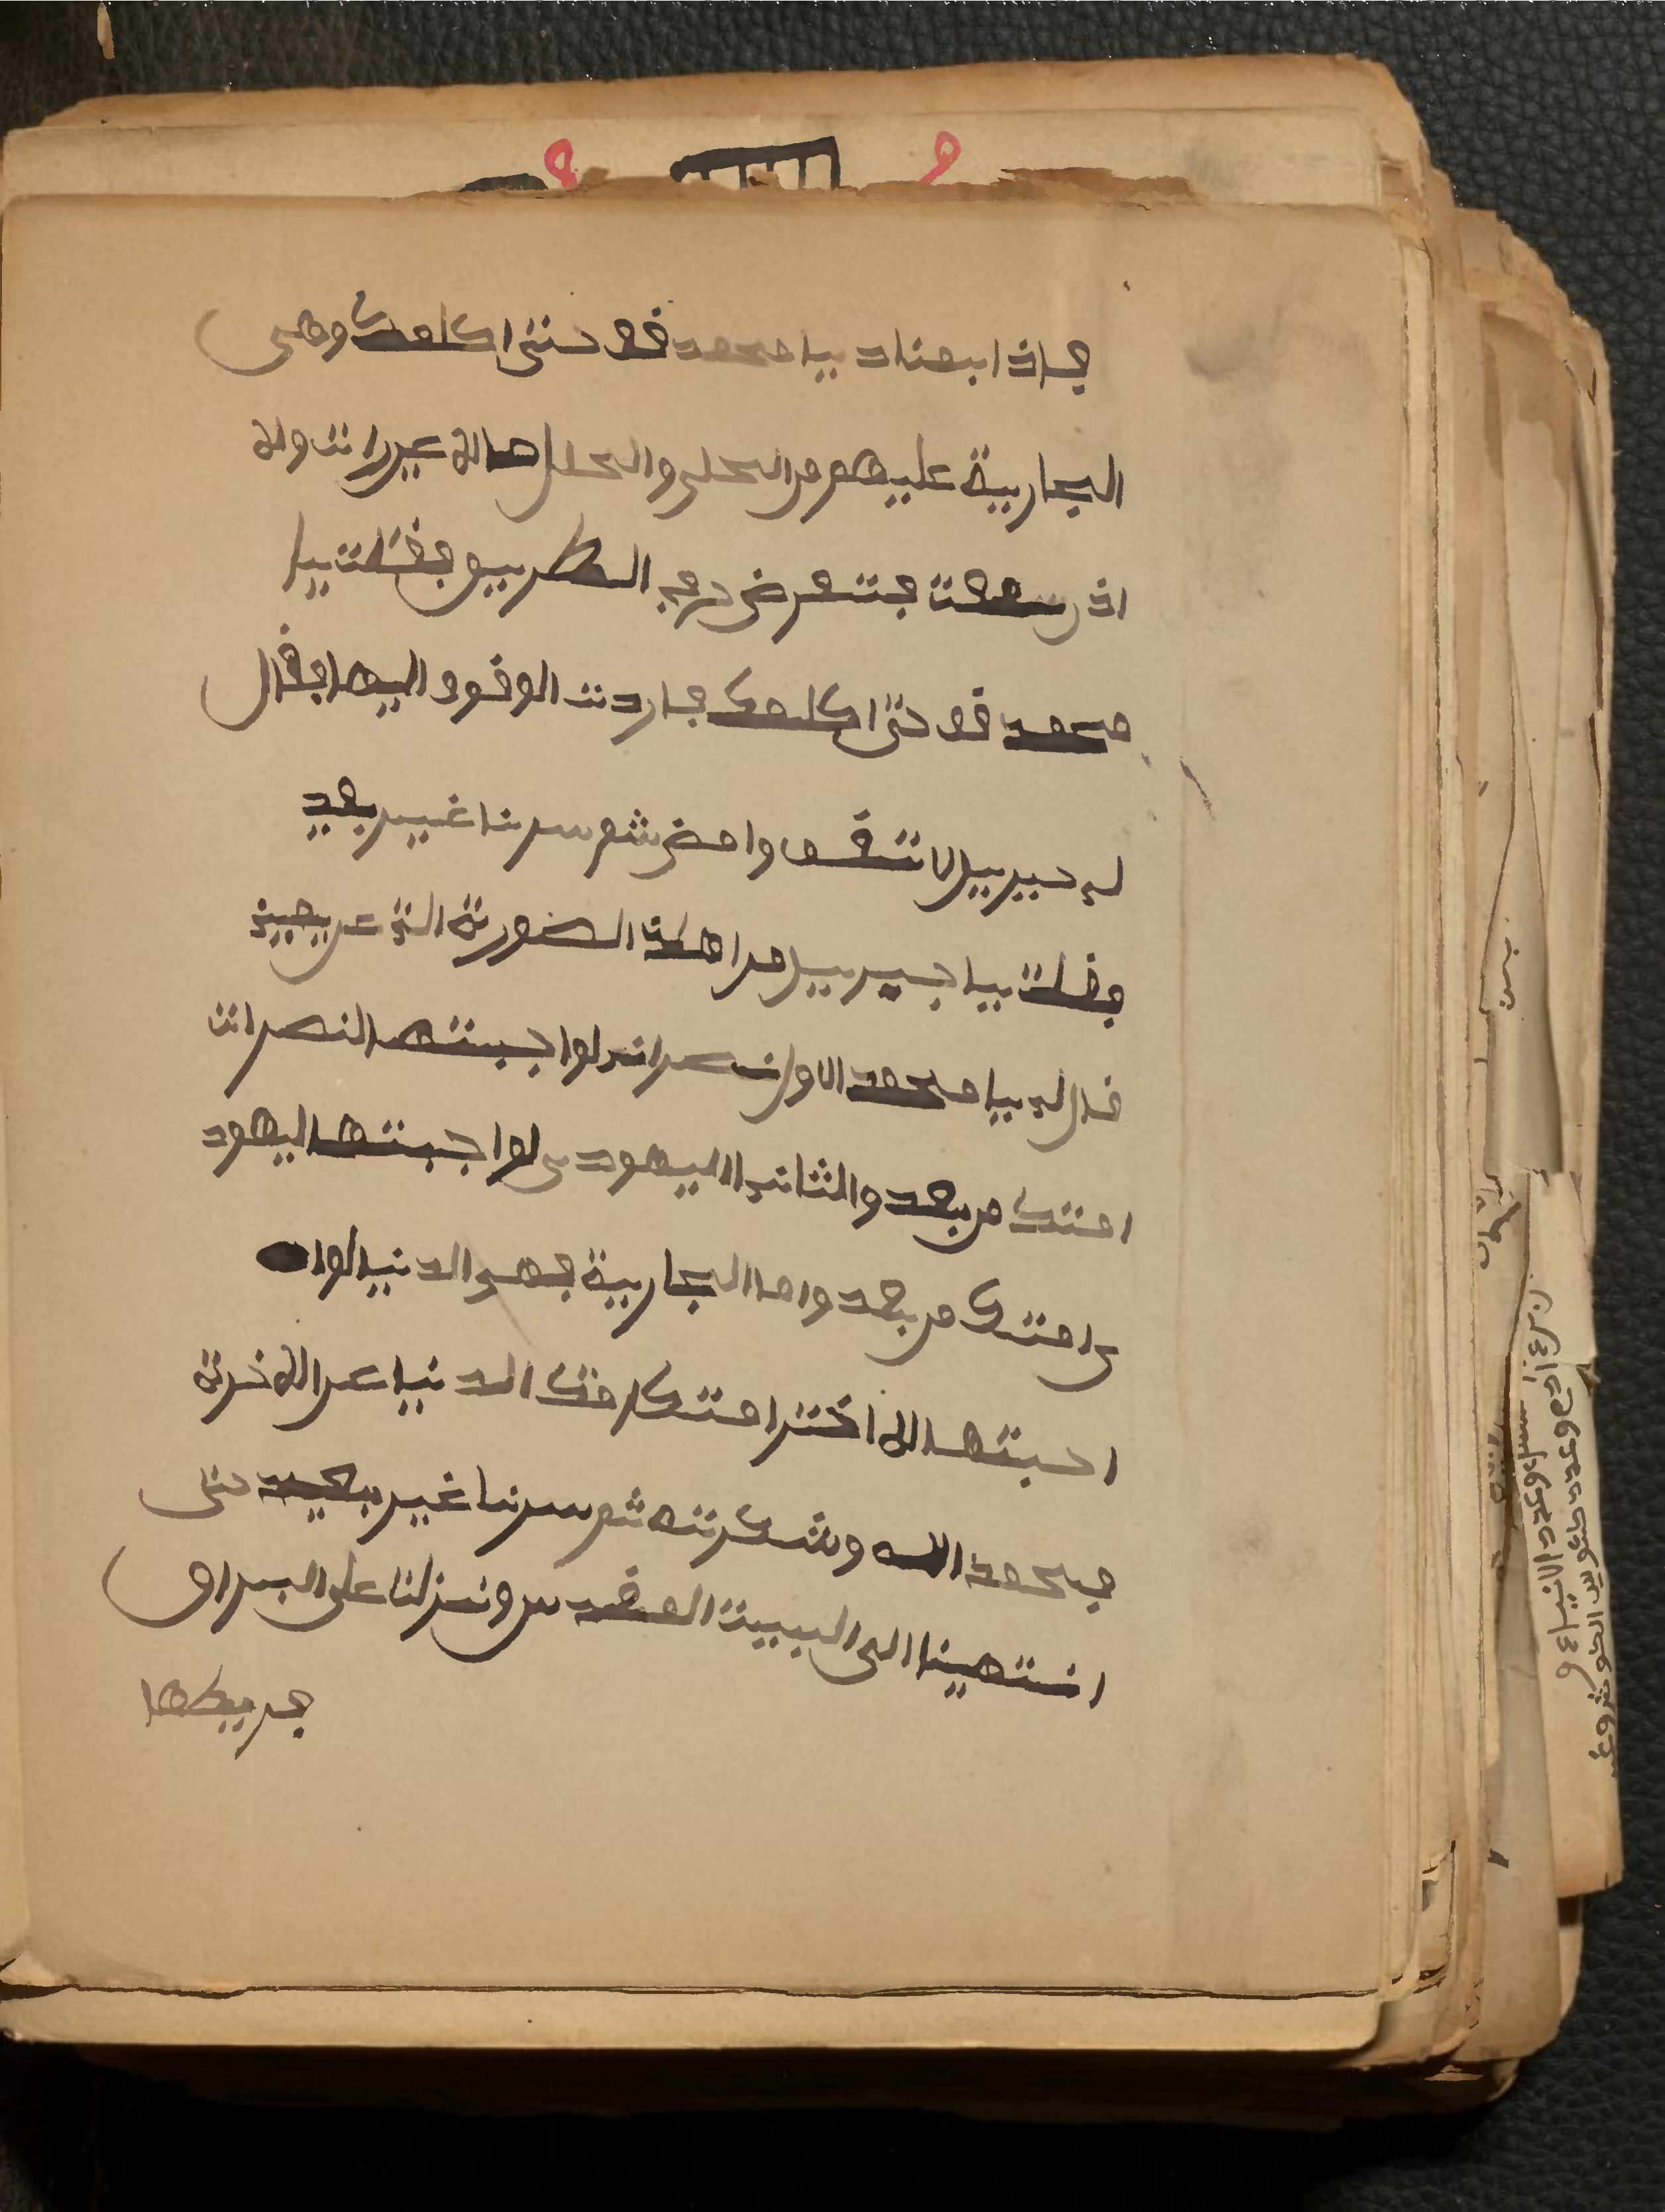 فاذا بمناد يا محمد قف حتى اكلمك وهى
الجارية عليهم من الحلى والحلل مالا عين رات ولا
اذن سمعت فتعرض فى الطريق فقلت يا
محمد قف حتى اكلمك فاردت الوقوف اليها فقال
لي جبريل لا تقف وامض ثم سرنا غير بعيد
فقلت يا جبريل من هذه الصورة التي عن يمين
قال لي يا محمد الاول نصراني لو اجبتها النصرات
امتك من بعد والثاني اليهودي لو اجبتها اليهود
ى امتك من بعد واما الجارية فهى الدنيا لو ا
احبتها لاختر امتك الدنيا عن الاخرة
فحمد الله وشكرته ثم سرنا غير بعيد حتى
انتهينا الى البيت المقدس ونزلنا على البراق
فربطها